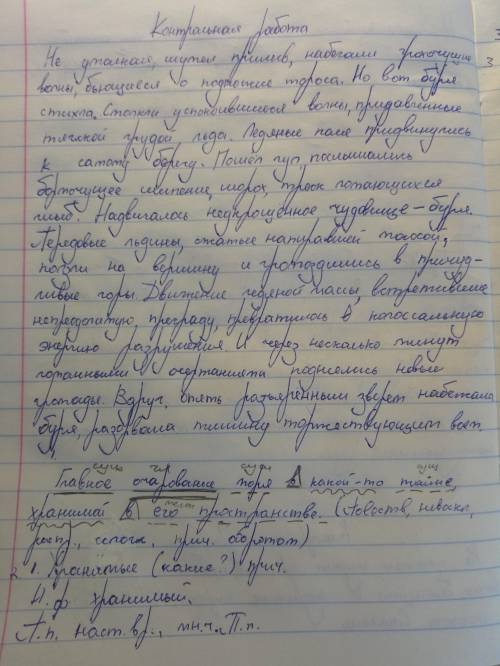 Контрольная работа
Не умолкая, шумел прилив, набегали грохочущие
волны, бьющиеся о подножие тороса. Но вот буря
стихла. Стонали успокоившиеся волны, придавленные
тяжкой грудой льда. Ледяные поля придвинулись
к самому берегу. Пошёл гул, послышались
шипение, шорох, треск ломающихся
глыб. Надвигалось неукрощенное чудовище - буря.
Передовые льдины, сжатые напиравшей массой,
ползли на вершину и громоздились в причуд-
ливые горы. Движение ледяной массы, встретившее
непреодолимую преграду, превратилось в колоссальную
энергию разрушения. И через несколько минут
ломанными очертаниями поднялись новые
громады. Вдруг опять разъяренным зверем набежала
буря, разорвала тишину торжествующим воем.
сущ сущ сущ
Главное очарование моря в какой-то тайне,
хранимой в его пространстве. (Повеств, невоскл,
прич. оборотом)
2. 1. Хранимые (какие?) прич.
Н.ф. хранимый.
П.п. наст. вр., мн.ч. П.п.